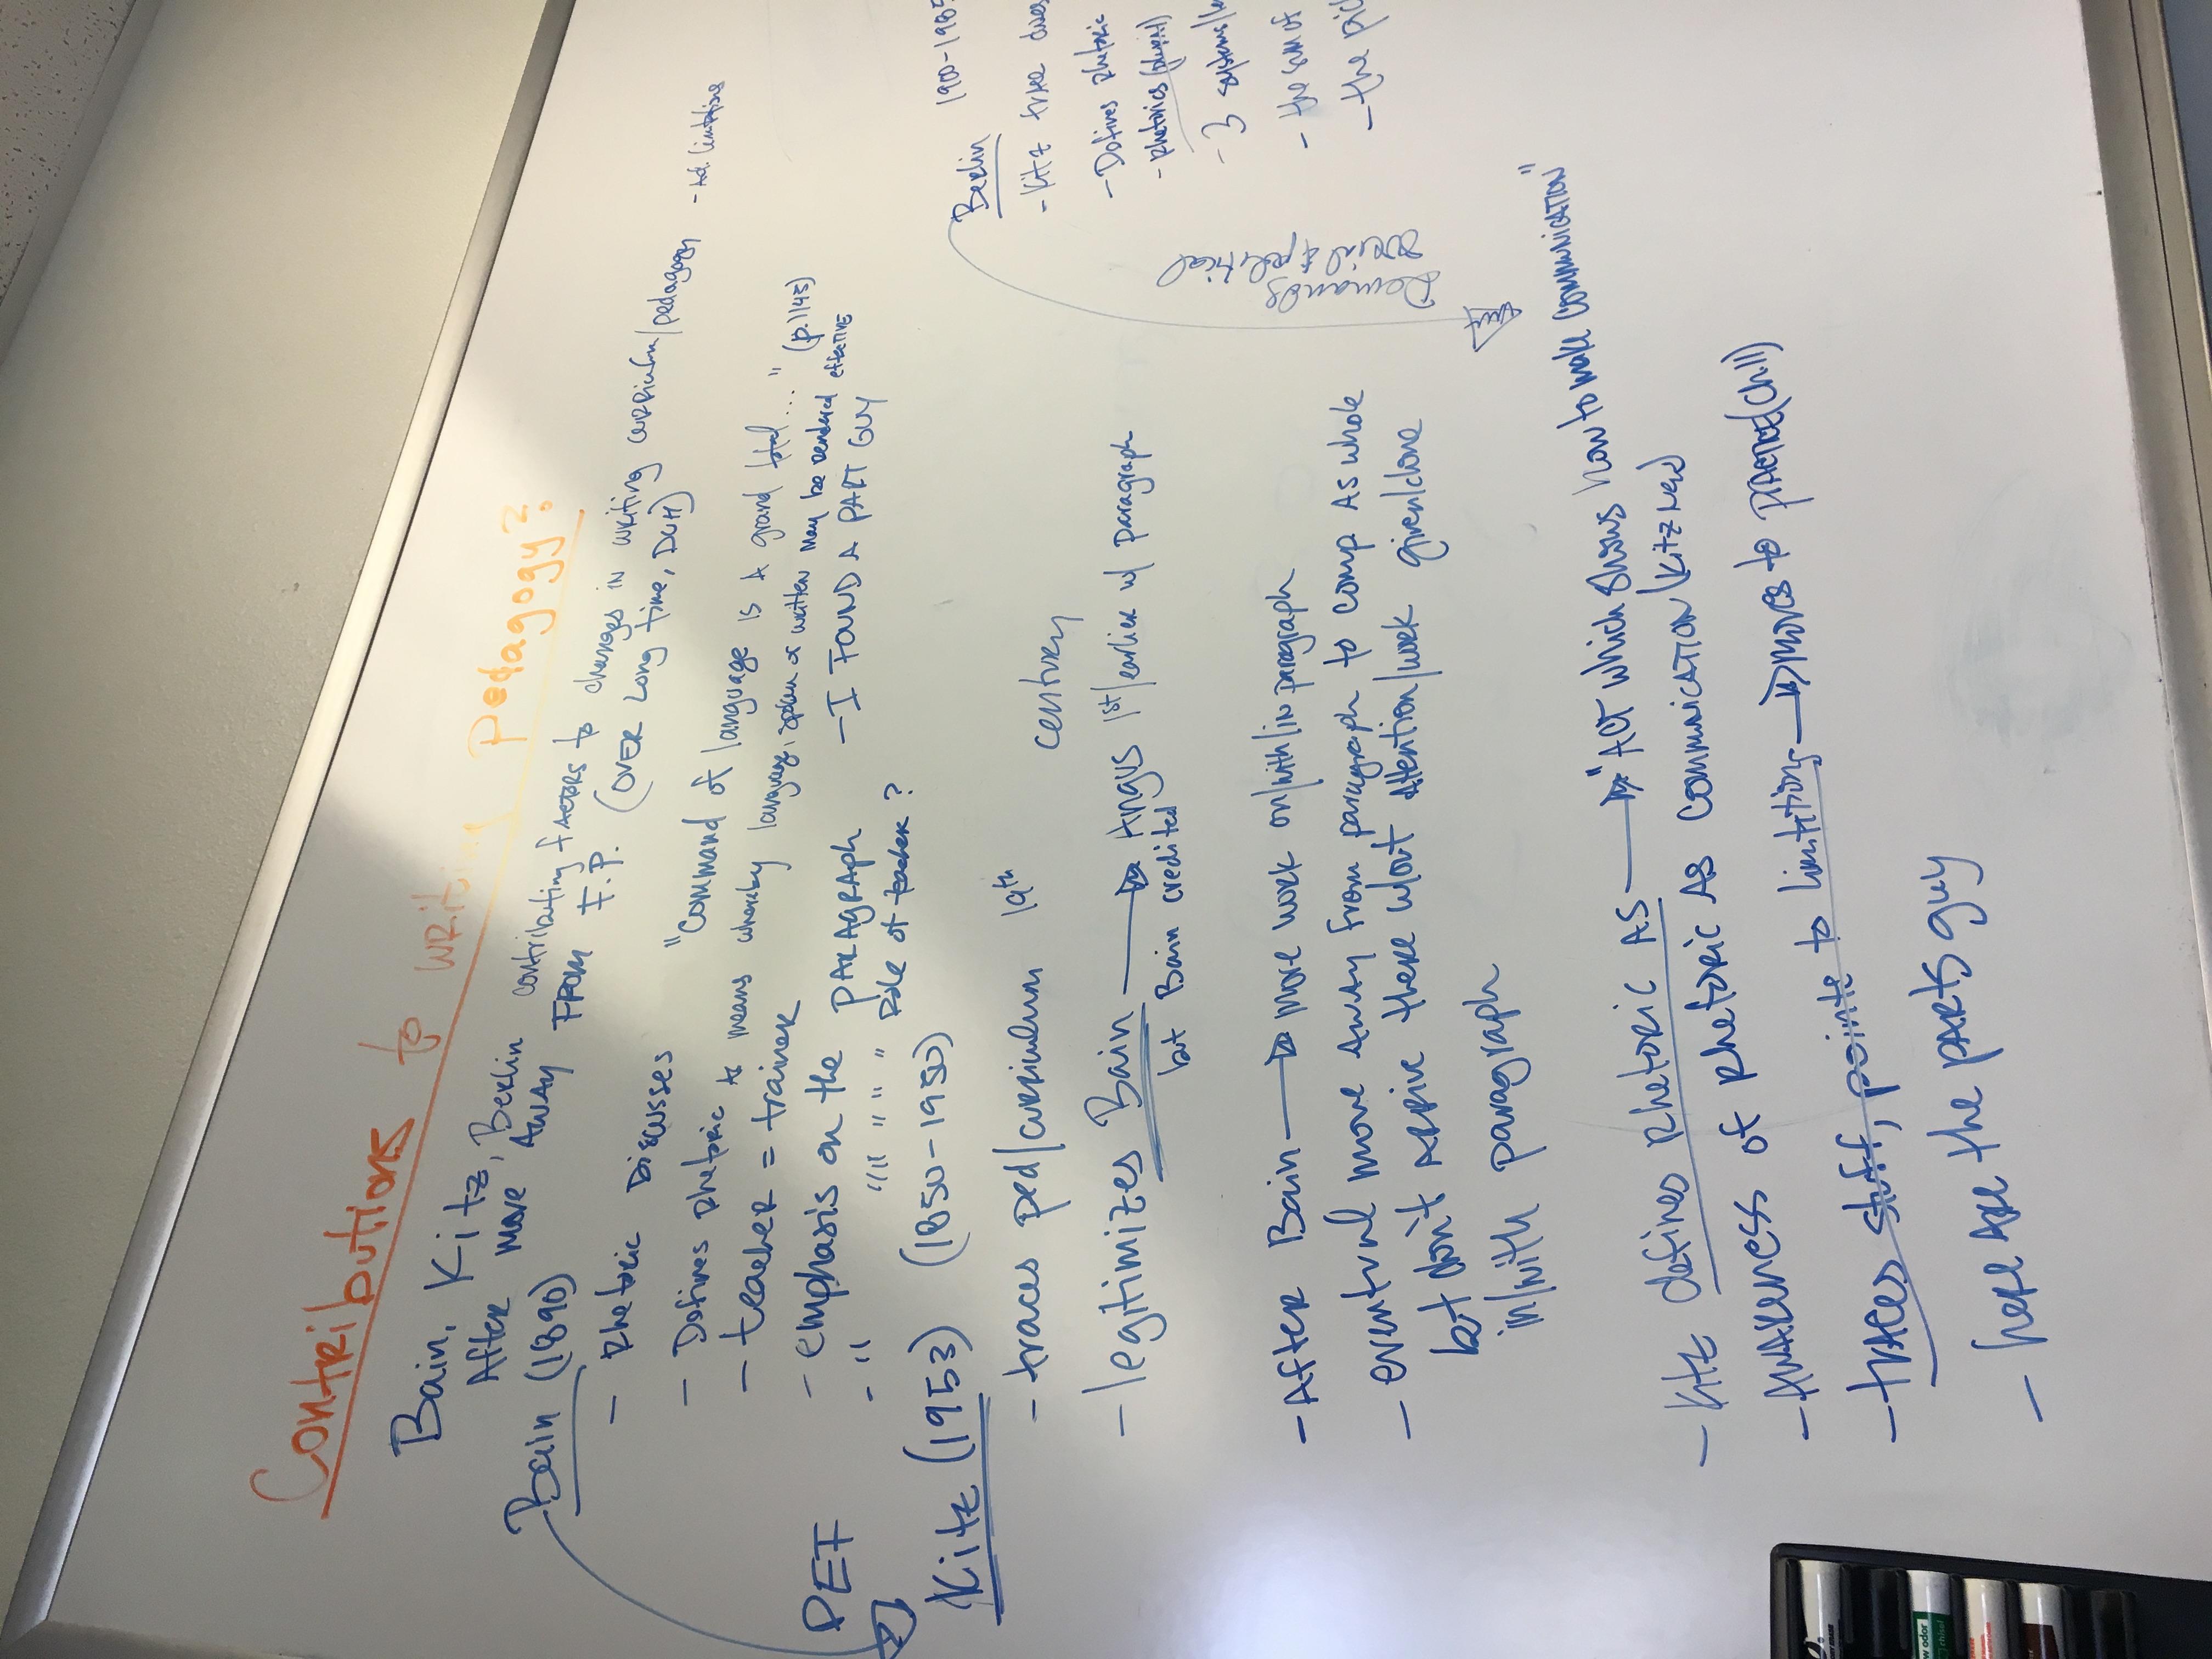 Contributions to writing Pedagogy?
Bain, Kitz, Berlin contributing factors to changes in writing curriculum/pedagogy
After move away from F.P. (over long time, DUH)
Bain (1890)
- Rhetoric Discusses "Command of language is a grand
- Defines rhetoric as means whereby language, spoken or written may be rendered effective" (p.1145)
- teacher = trainer - I FOUND A PART GUY
- emphasis on the PARAGRAPH
- " "" " " " Role of teacher?
PET
Kitz (1953) (1850-1950)
- traces ped/curriculum 19th century
- legitimizes Bain → Angus 1st/earlier w/ paragraph
but Bain credited
- After Bain → more work on/with/in paragraph
- eventual move away from paragraph to comp as whole
but don't arrive there w/out attention/work given/done
in/with paragraph
- Kitz defines rhetoric as → "Art which shows how to make communication"
- Awareness of rhetoric as communication (Kitz
- traces stuff, points to limiting → moves to
- here are the parts guy
Berlin 1900-1985
- Kitz
- Defines rhetoric
- rhetorics (plural)
- 3
- the
- the
Demands
social & political